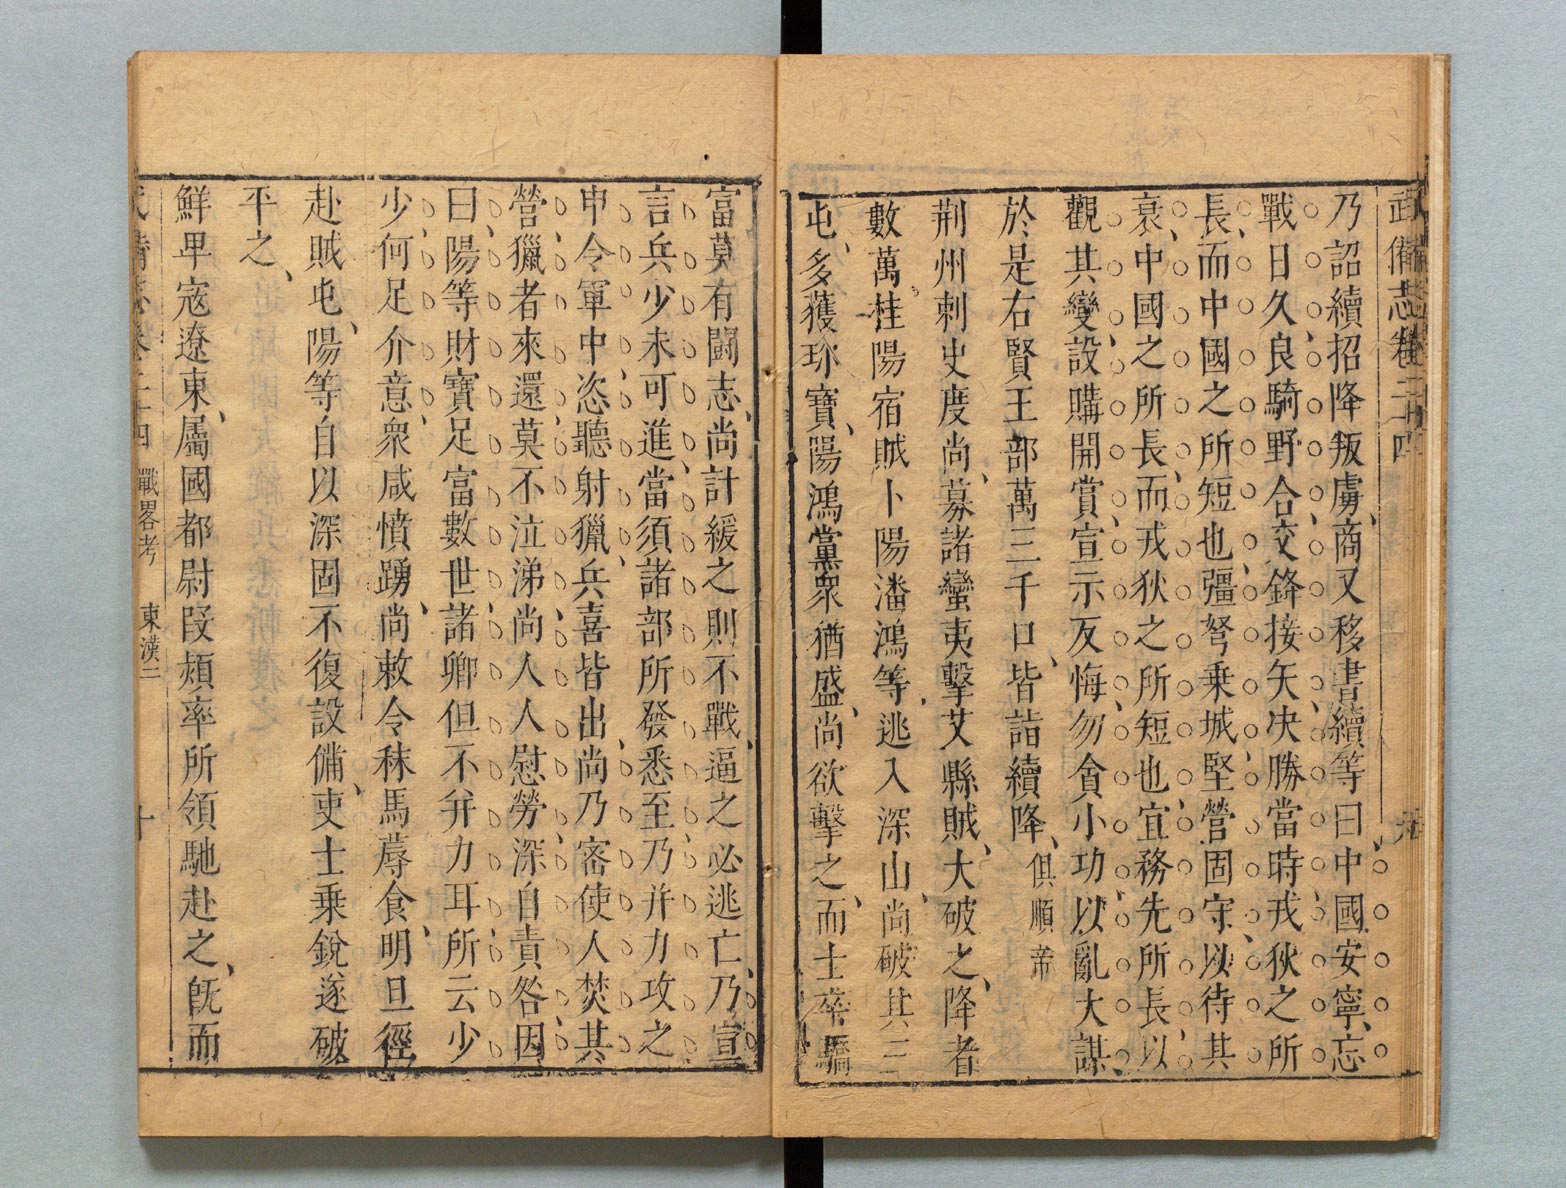 武備志卷二十四
乃詔續招降叛虜商又移書續等曰中國安寧忘
戰日久良騎野合交鋒接矢决勝當時戎狄之所
長而中國之所短也彊弩乗城堅營固守以待其
衰中國之所長而戎狄之所短也宜務先所長以
觀其變設購開賞宣示反悔勿貪小功以亂大謀
於是右賢王部萬三千口皆詣續降俱順帝
荆州刺史度尚募諸蠻夷擊艾縣賊大破之降者
數萬桂陽宿賊卜陽潘鴻等逃入深山尚破其三
屯多獲珎寶陽鴻黨衆猶盛尚欲擊之而士卒驕
富莫有闘志尚計緩之則不戰逼之必逃亡乃宣
言兵少未可進當須諸部所發悉至乃并力攻之
申令軍中恣聽射獵兵喜皆出尚乃密使人焚其
營獵者來還莫不泣涕尚人人慰勞深自責咎因
曰陽等財寶足富數世諸卿但不并力耳所云少
少何足介意衆咸憤踴尚敕令秣馬蓐食明旦徑
赴賊屯陽等自以深固不復設備吏士乗銳遂破
平之
鮮卑寇遼東屬國都尉段熲率所領馳赴之旣而
武備志卷二十四 戰畧考 東漢二 十